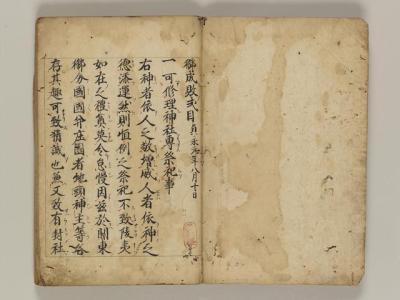 御成敗式目 貞永元年八月十日
一可修理神社専祭祀事
右神者依人之敬増威人者依神之
徳添運然則恒例之祭祀不致陵夷
如在之礼奠莫令怠慢因茲於関東
御分國國并庄園者地頭神主等各
存其趣可致精誠也兼又至有封社